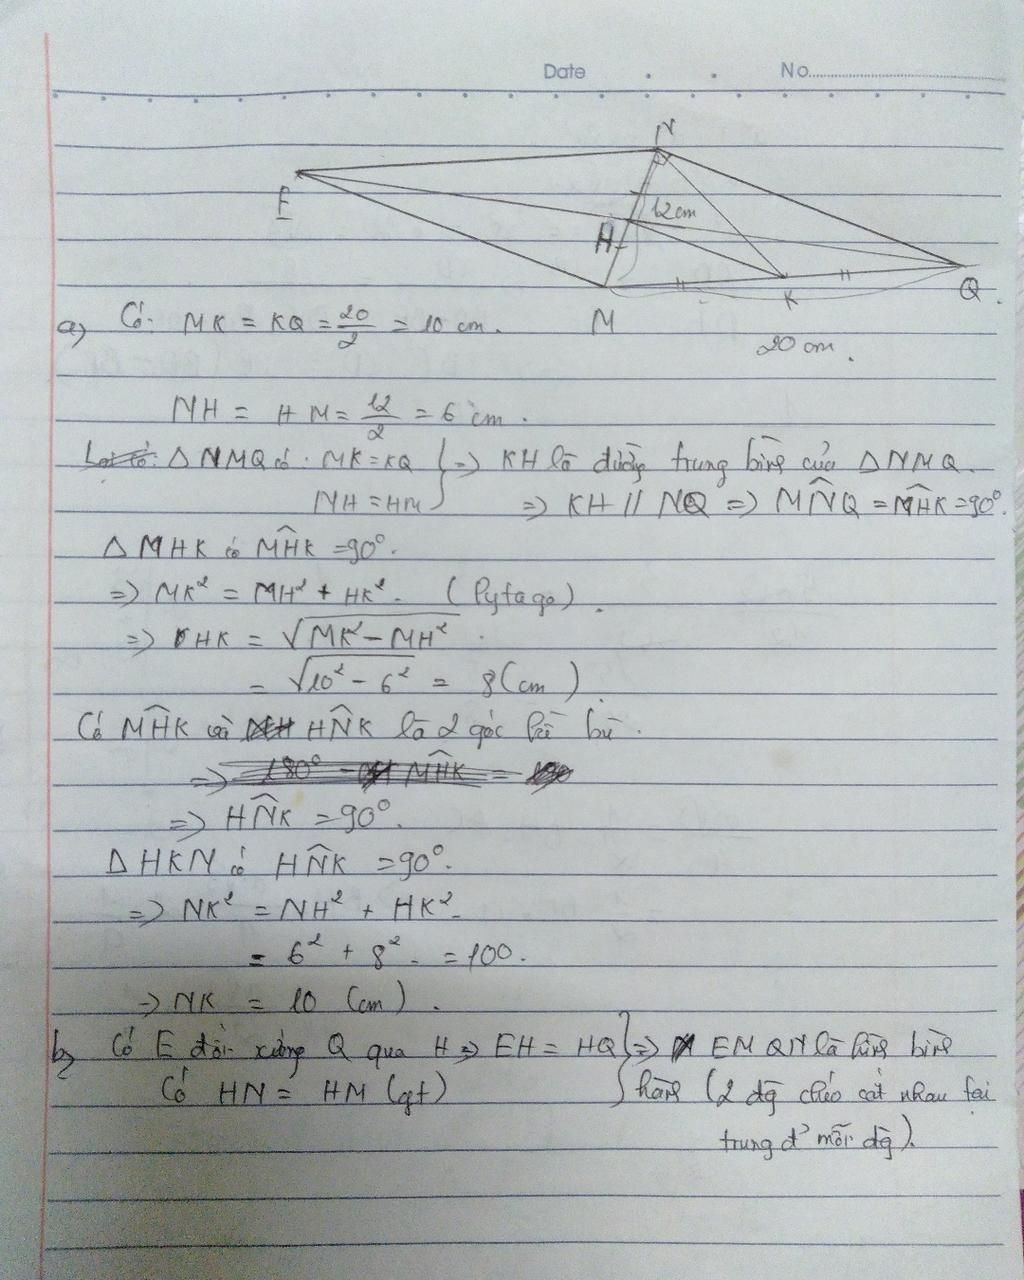 Date No
N
E
12cm
H
M
K
Q
20 cm.
a) Có: MK = KQ = 20/2 = 10 cm.
NH = HM = 12/2 = 6 cm.
ΔNMQ có: MK = KQ } => KH là đường trung bình của ΔNMQ.
NH = HM => KH // NQ => MN̂Q = MĤK = 90°.
ΔMHK có MĤK = 90°.
=> MK² = MH² + HK². (Pytago).
=> HK = √(MK² - MH²).
= √(10² - 6²) = 8 (cm).
Có MĤK và HN̂K là 2 góc kề bù.
=> 180° - MĤK =
=> HN̂K = 90°.
ΔHKN có HN̂K = 90°.
=> NK² = NH² + HK².
= 6² + 8². = 100.
=> NK = 10 (cm).
b) Có E đối xứng Q qua H => EH = HQ } => EMQN là hình bình
Có HN = HM (gt) hành (2 đg chéo cắt nhau tại
trung đ' mỗi đg).